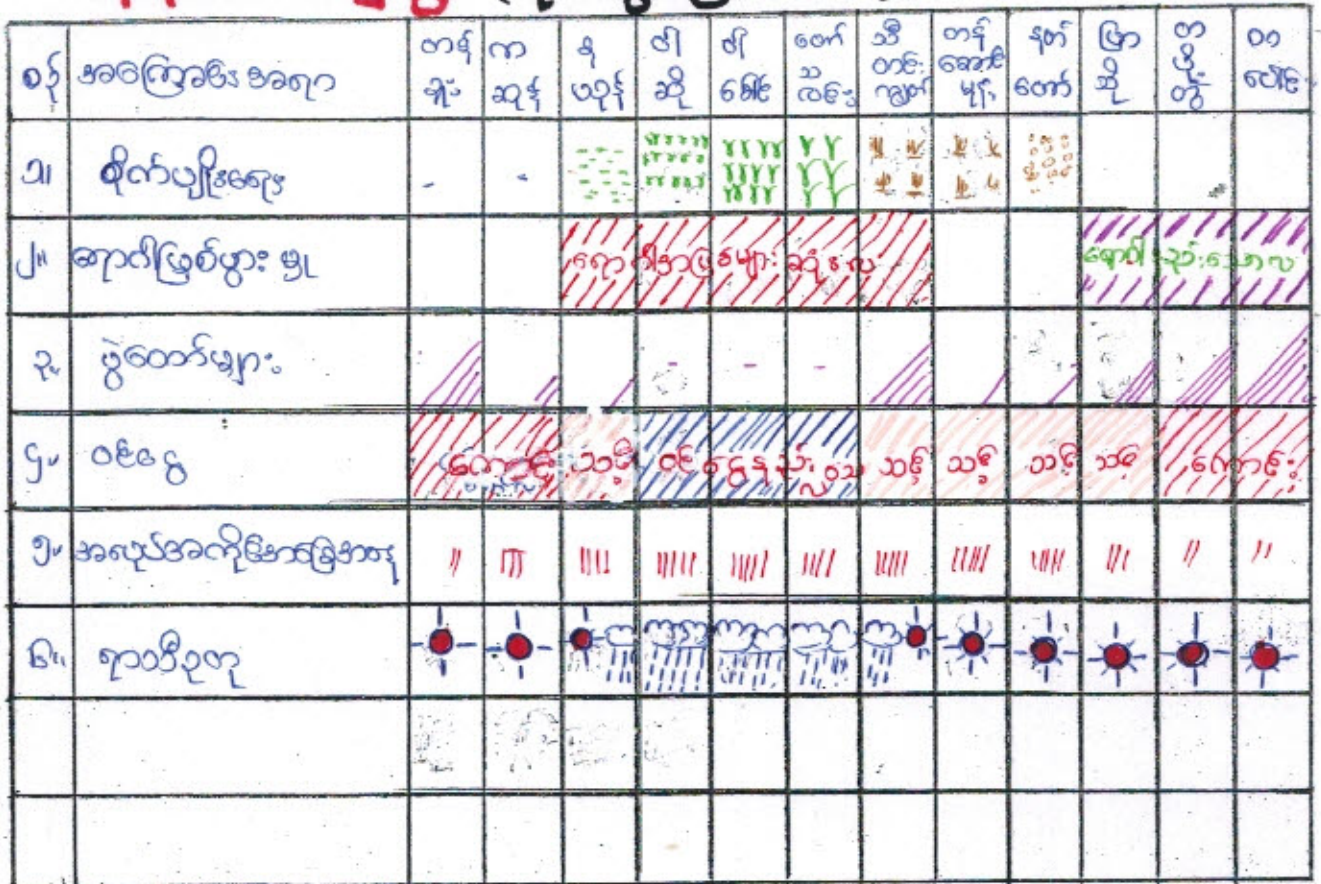 စဉ် အကြောင်းအရာ တန်ခူး ကဆုန် နယုန် ဝါဆို ဝါခေါင် တော်သလင်း သီတင်းကျွတ် တန်ဆောင်မုန်း နတ်တော် ပြာသို တပို့တွဲ တပေါင်း
၁။ စိုက်ပျိုးရေး - -
၂။ ရောဂါဖြစ်ပွားမှု ရောဂါအဖြစ်များဆုံးလ ရောဂါနည်းသောလ
၃။ ပွဲတော်များ - - -
၄။ ဝင်ငွေ ကောင်း သင့် ဝင်ငွေနည်းလာ သင့် သင့် သင့် သင့် ကောင်း
၅။
၆။ ရာသီဥတု